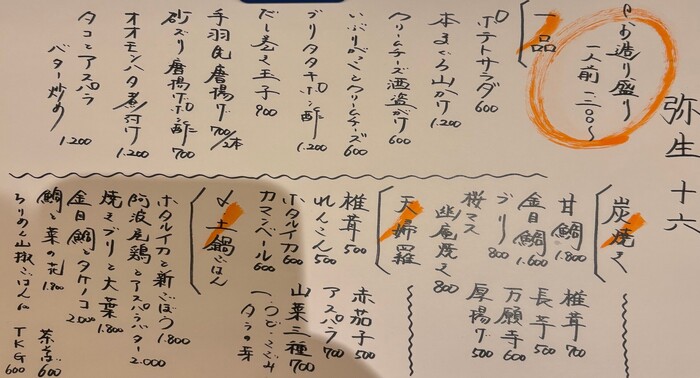 弥生 十六
お造り盛り
一人前 二二〇〇〜
一品
ポテトサラダ 600
本まぐろ山かけ 1.200
クリームチーズ酒盗がけ 600
いぶりがっことクリームチーズ 600
ブリタタキポン酢 1.200
だし巻き玉子 900
手羽先唐揚げ 700/2本
砂ズリ唐揚げポン酢 700
オオモンハタ煮付け 1.200
タコとアスパラ
バター炒め 1.200
炭焼き
甘鯛 1.800
金目鯛 1.600
ブリ 800
桜マス
幽庵焼き 800
椎茸 700
長芋 500
万願寺 600
厚揚げ 500
天婦羅
椎茸 500
れんこん 500
ホタルイカ 600
カマンベール 600
赤茄子 500
アスパラ 700
山菜三種 700
こごみ
タラの芽
〆 土鍋ごはん
ホタルイカと新ごぼう 1.800
阿波尾鶏とアスパラバター 2.000
焼きブリと大葉 1.800
金目鯛とタケノコ 2.000
鯛と菜の花 1.800
ちりめん山椒ごはん
茶そば 600
TKG 600